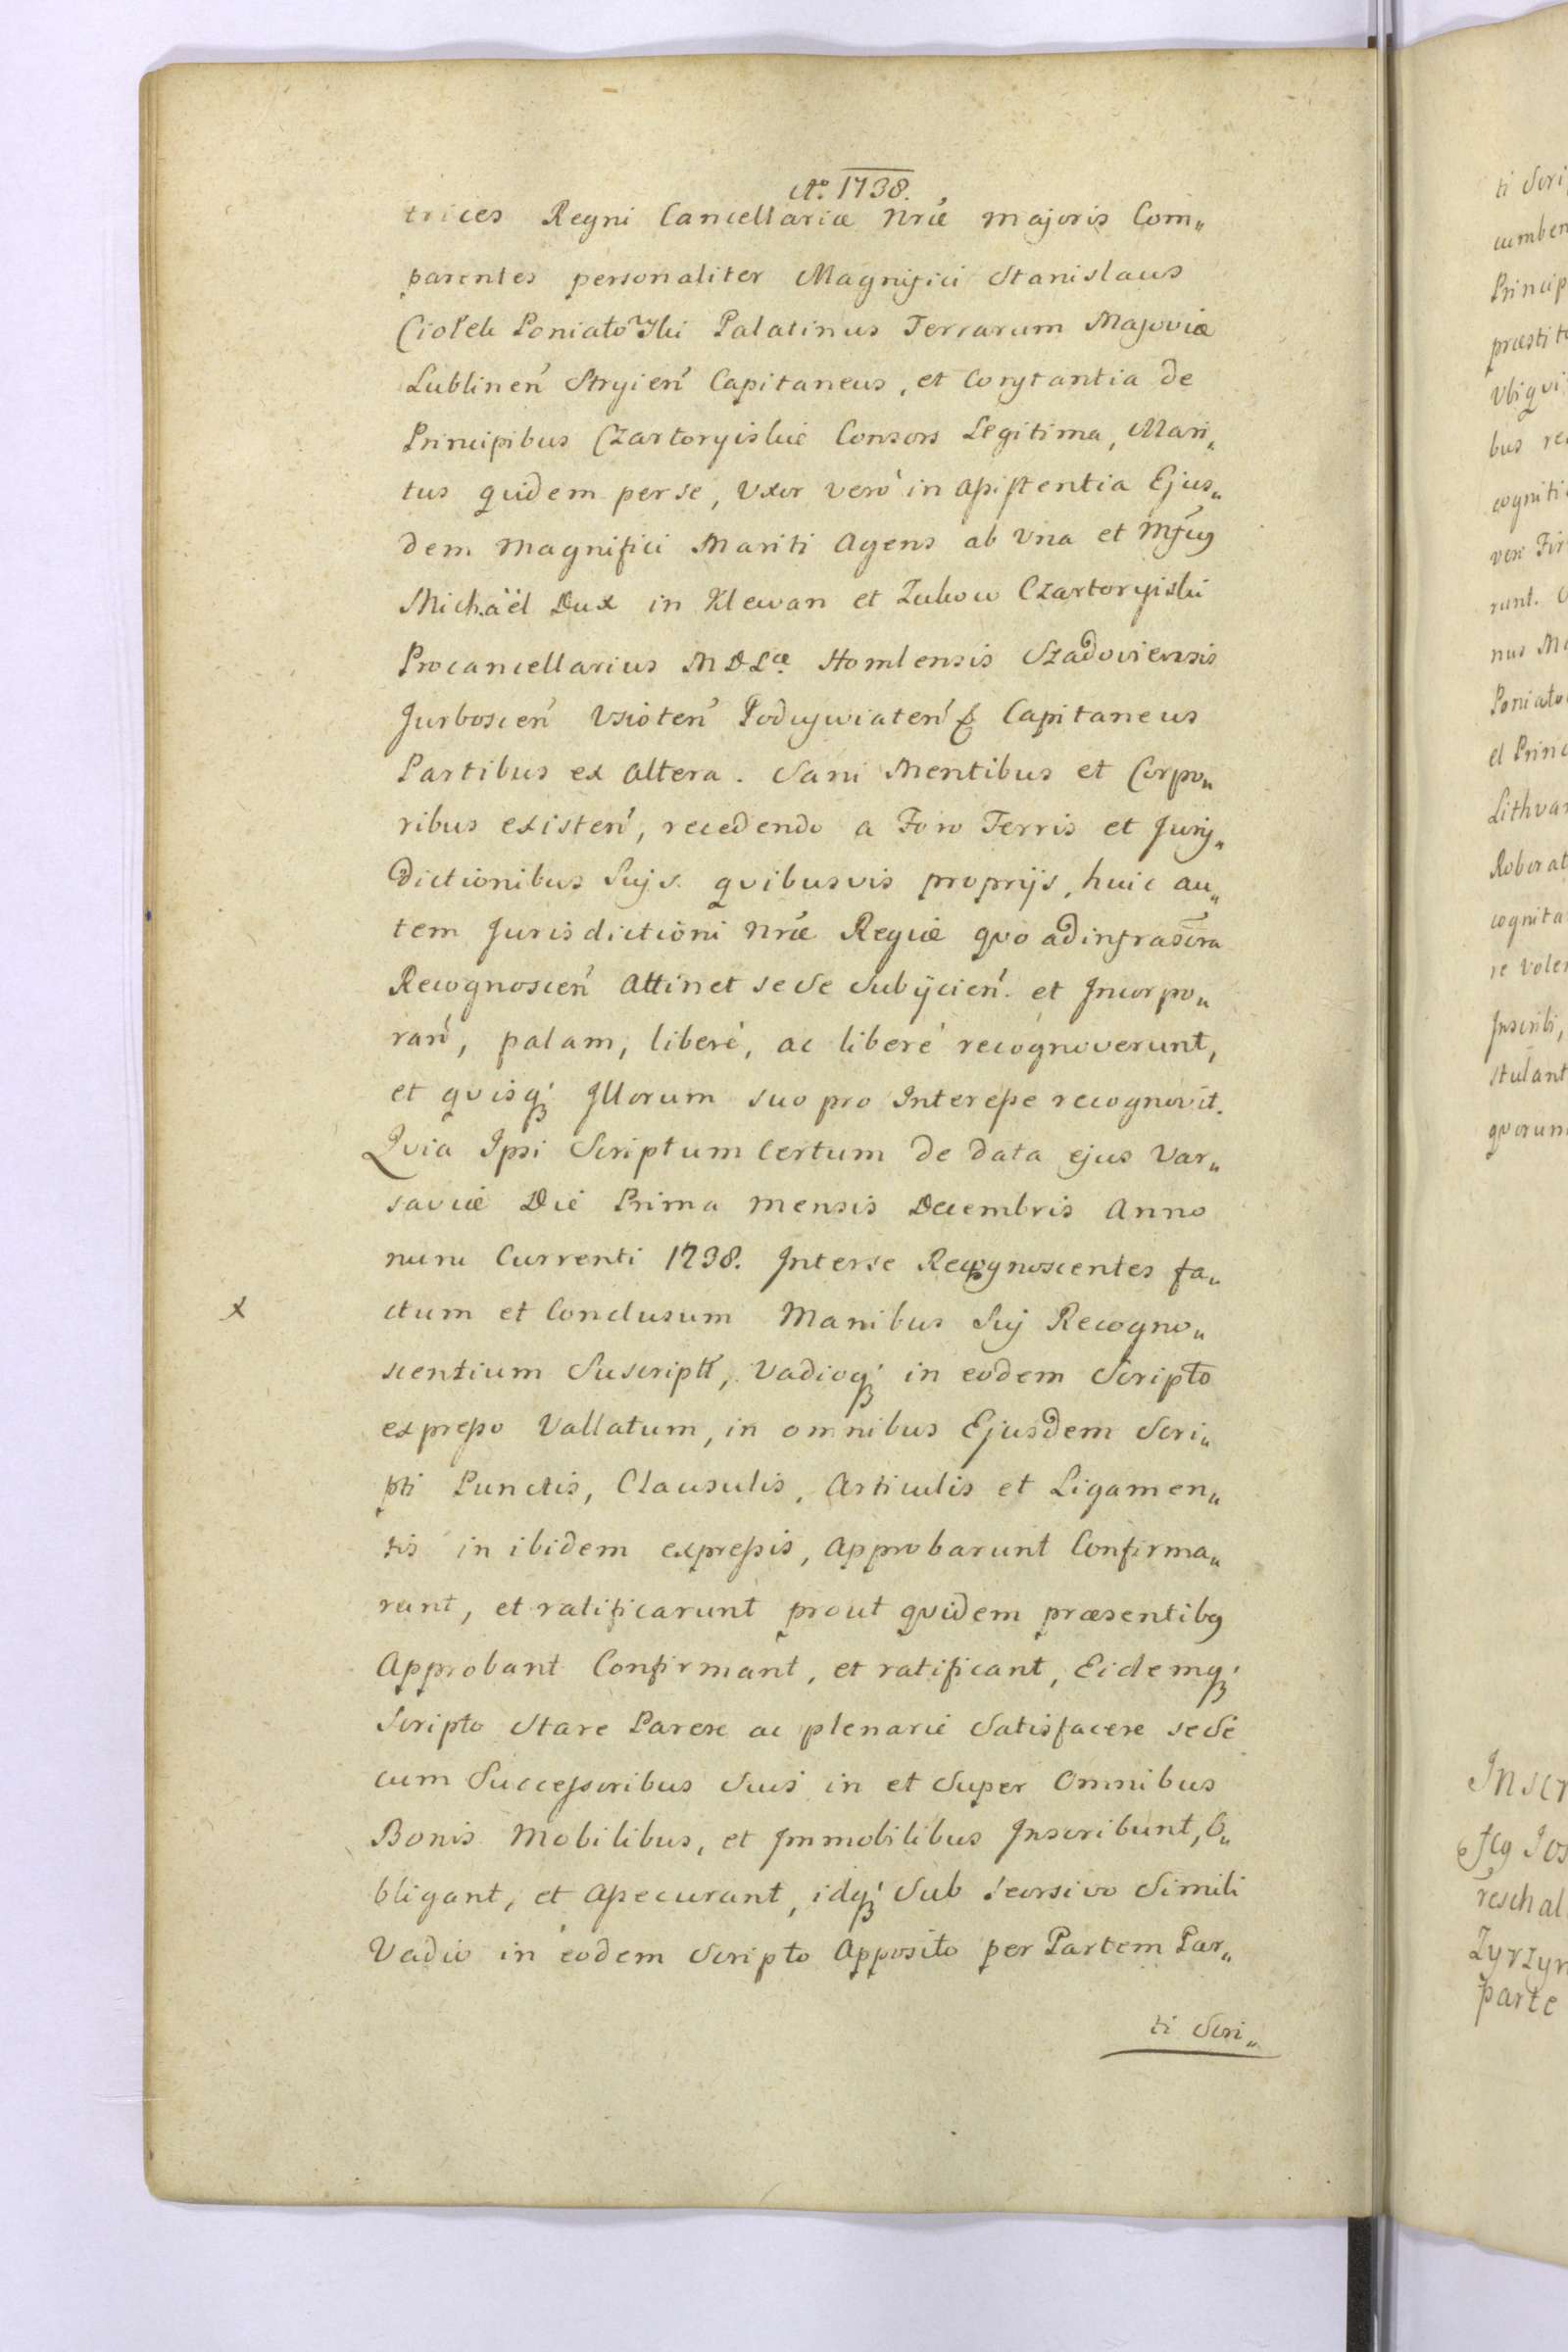 Ao. 1738.
trices Regni Cancellariæ Nræ majoris Com„
parentes personaliter Magnifici Stanislaus
Ciołek Poniatowski Palatinus Terrarum Mazoviæ
Lublinen Stryien Capitaneus, et Constantia de
Principibus Czartoryiskie Consors Legitima, Mari„
tus quidem per se, Uxor verò in assistentia Ejus„
dem Magnifici Mariti Agens ab Una et Mfcus
Michäel Dux in Klewan et Zukow Czartoryiski
Procancellarius M D Læ Homlensis Szadoviensis
Jurboscen Usioten Poduswiaten & Capitaneus
Partibus ex Altera. Sani Mentibus et Corpo„
ribus existen, recedendo a Foro Terris et Juris„
dictionibus Suis quibusvis proprijs, huic au„
tem Jurisdictioni Nræ Regiæ quo ad infrascra
Recognoscen Attinet sese Subijcien. et Incorpo„
ran, palam, liberè, ac liberè recognoverunt,
et quisq; Illorum suo pro Interesse recognovit.
Quia Ipsi Scriptum Certum de data ejus Var„
saviæ Die Prima mensis Decembris Anno
nunc Currenti 1738. Inter se Recognoscentes fa„
ctum et Conclusum Manibus Suis Recogno„
x
scentium Suscript, Vadioq; in eodem Scripto
expresso Vallatum, in omnibus Ejusdem Scri„
pti Punctis, Clausulis, Articulis et Ligamen„
tis in ibidem expressis, Approbarunt Confirma„
runt, et ratificarunt prout quidem præsentibus
Approbant Confirmant, et ratificant, Eidemq;
Scripto Stare Parere ac plenarie Satisfacere sese
cum Successoribus Suis in et Super Omnibus
Bonis Mobilibus, et Immobilibus Inscribunt, O„
bligant, et Assecurant, idq; Sub seorsivo Simili
Vadio in eodem Scripto Apposito per Partem Par„
ti Scri„
ti Scri
cumben
Princip
præstit
Ubi qvi
bus re
cogniti
vero Fir
runt.
nus Ma
Poniato
et Princ
Lithvan
Roborat
cognita
re vole
Inscribi,
stulant
quorum
Inscr
Jos
reschal
Zyrzyn
parte